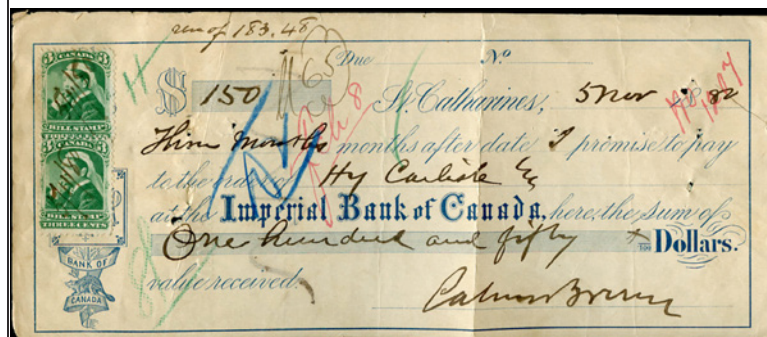 183.48
Due Nº
$ 150 St. Catharines, 5 Nov 1880
Three Months months after date I promise to pay
to the order of Hy Carlisle Esq
at the Imperial Bank of Canada, here, the sum of
One hundred and fifty 100 Dollars.
value received.
3 CANADA 3
BILL STAMP
THREE CENTS
3 CANADA 3
BILL STAMP
THREE CENTS
BANK OF
CANADA